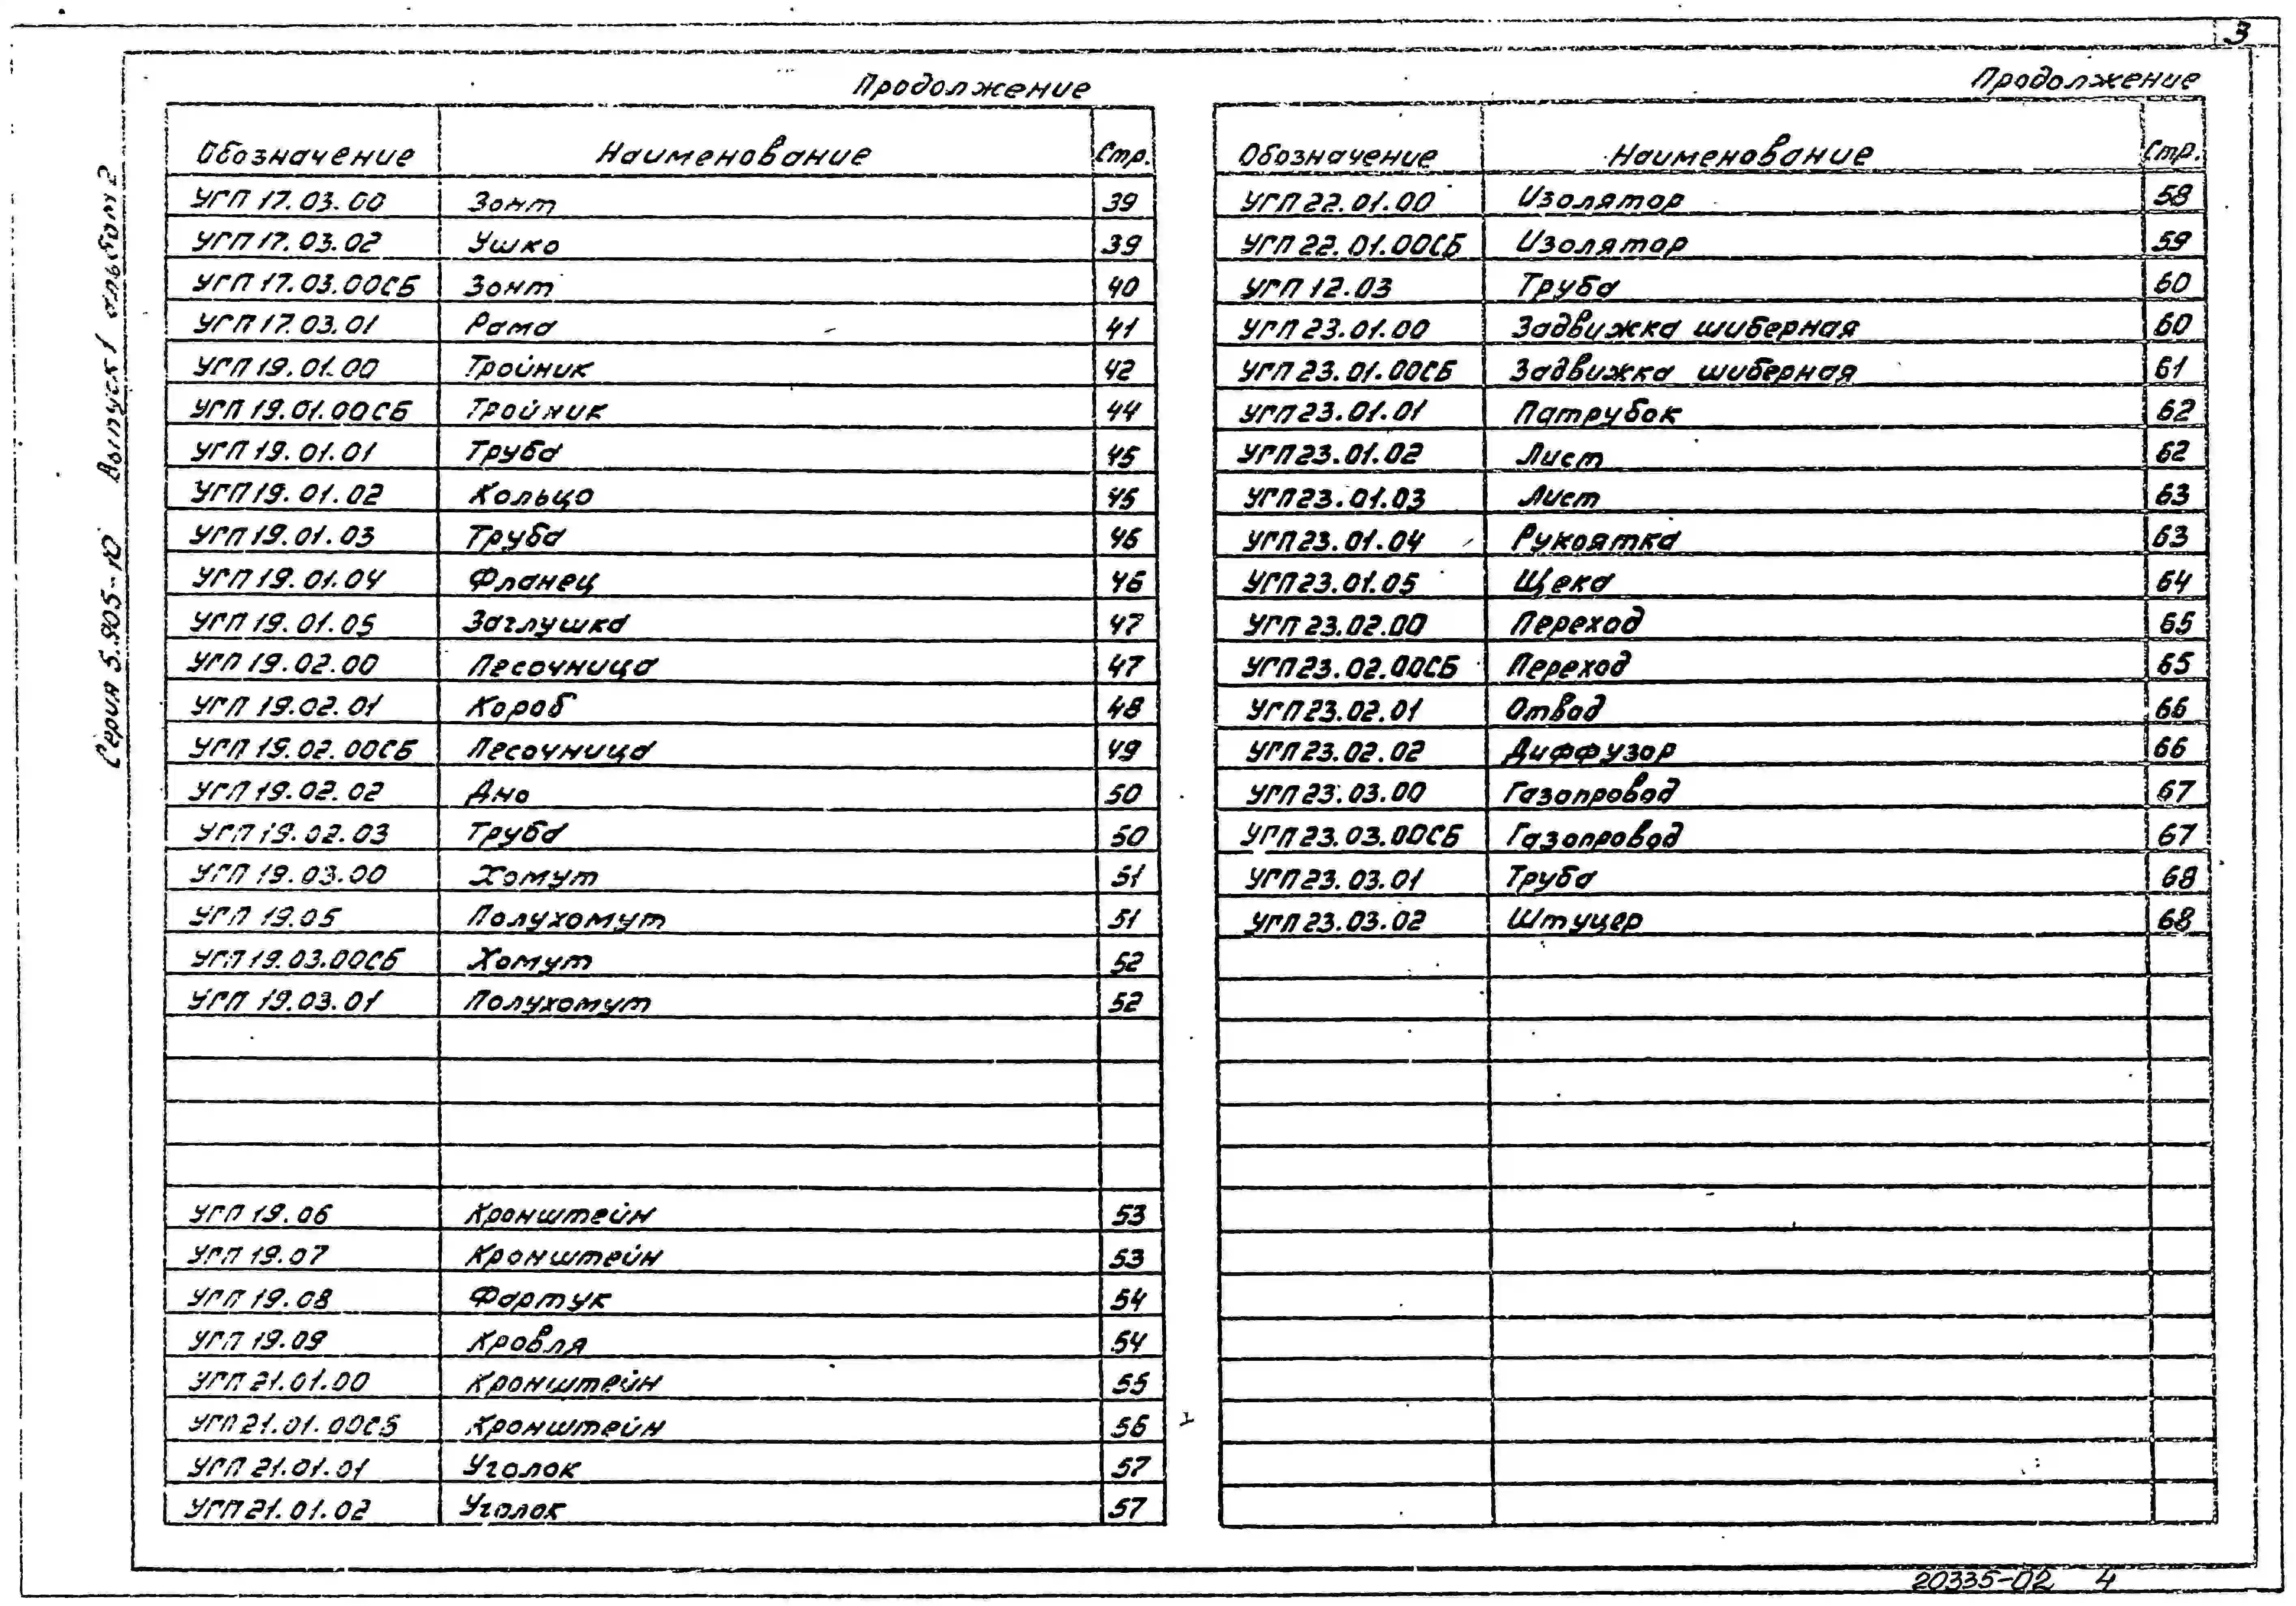 3
Серия 5.905-10 Выпуск 1 альбом 2
Продолжение
Обозначение Наименование Стр.
УГП 17.03.00 Зонт 39
УГП 17.03.02 Ушко 39
УГП 17.03.00СБ Зонт 40
УГП 17.03.01 Рама 41
УГП 19.01.00 Тройник 42
УГП 19.01.00СБ Тройник 44
УГП 19.01.01 Труба 45
УГП 19.01.02 Кольцо 45
УГП 19.01.03 Труба 46
УГП 19.01.04 Фланец 46
УГП 19.01.05 Заглушка 47
УГП 19.02.00 Песочница 47
УГП 19.02.01 Короб 48
УГП 19.02.00СБ Песочница 49
УГП 19.02.02 Дно 50
УГП 19.02.03 Труба 50
УГП 19.03.00 Хомут 51
УГП 19.05 Полухомут 51
УГП 19.03.00СБ Хомут 52
УГП 19.03.01 Полухомут 52
УГП 19.06 Кронштейн 53
УГП 19.07 Кронштейн 53
УГП 19.08 Фартук 54
УГП 19.09 Кровля 54
УГП 21.01.00 Кронштейн 55
УГП 21.01.00СБ Кронштейн 56
УГП 21.01.01 Уголок 57
УГП 21.01.02 Уголок 57
Продолжение
Обозначение Наименование Стр.
УГП 22.01.00 Изолятор 58
УГП 22.01.00СБ Изолятор 59
УГП 12.03 Труба 60
УГП 23.01.00 Задвижка шиберная 60
УГП 23.01.00СБ Задвижка шиберная 61
УГП 23.01.01 Патрубок 62
УГП 23.01.02 Лист 62
УГП 23.01.03 Лист 63
УГП 23.01.04 Рукоятка 63
УГП 23.01.05 Щека 64
УГП 23.02.00 Переход 65
УГП 23.02.00СБ Переход 65
УГП 23.02.01 Отвод 66
УГП 23.02.02 Диффузор 66
УГП 23.03.00 Газопровод 67
УГП 23.03.00СБ Газопровод 67
УГП 23.03.01 Труба 68
УГП 23.03.02 Штуцер 68
20335-02 4